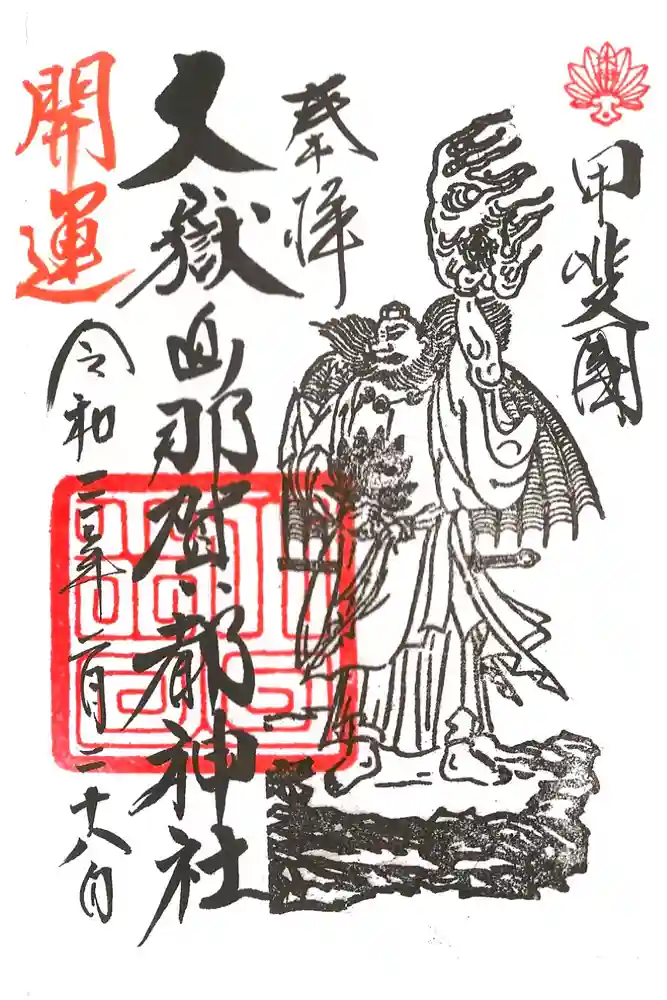 甲斐國
奉拝
大嶽山那賀都神社
開運
令和三年二月二十八日